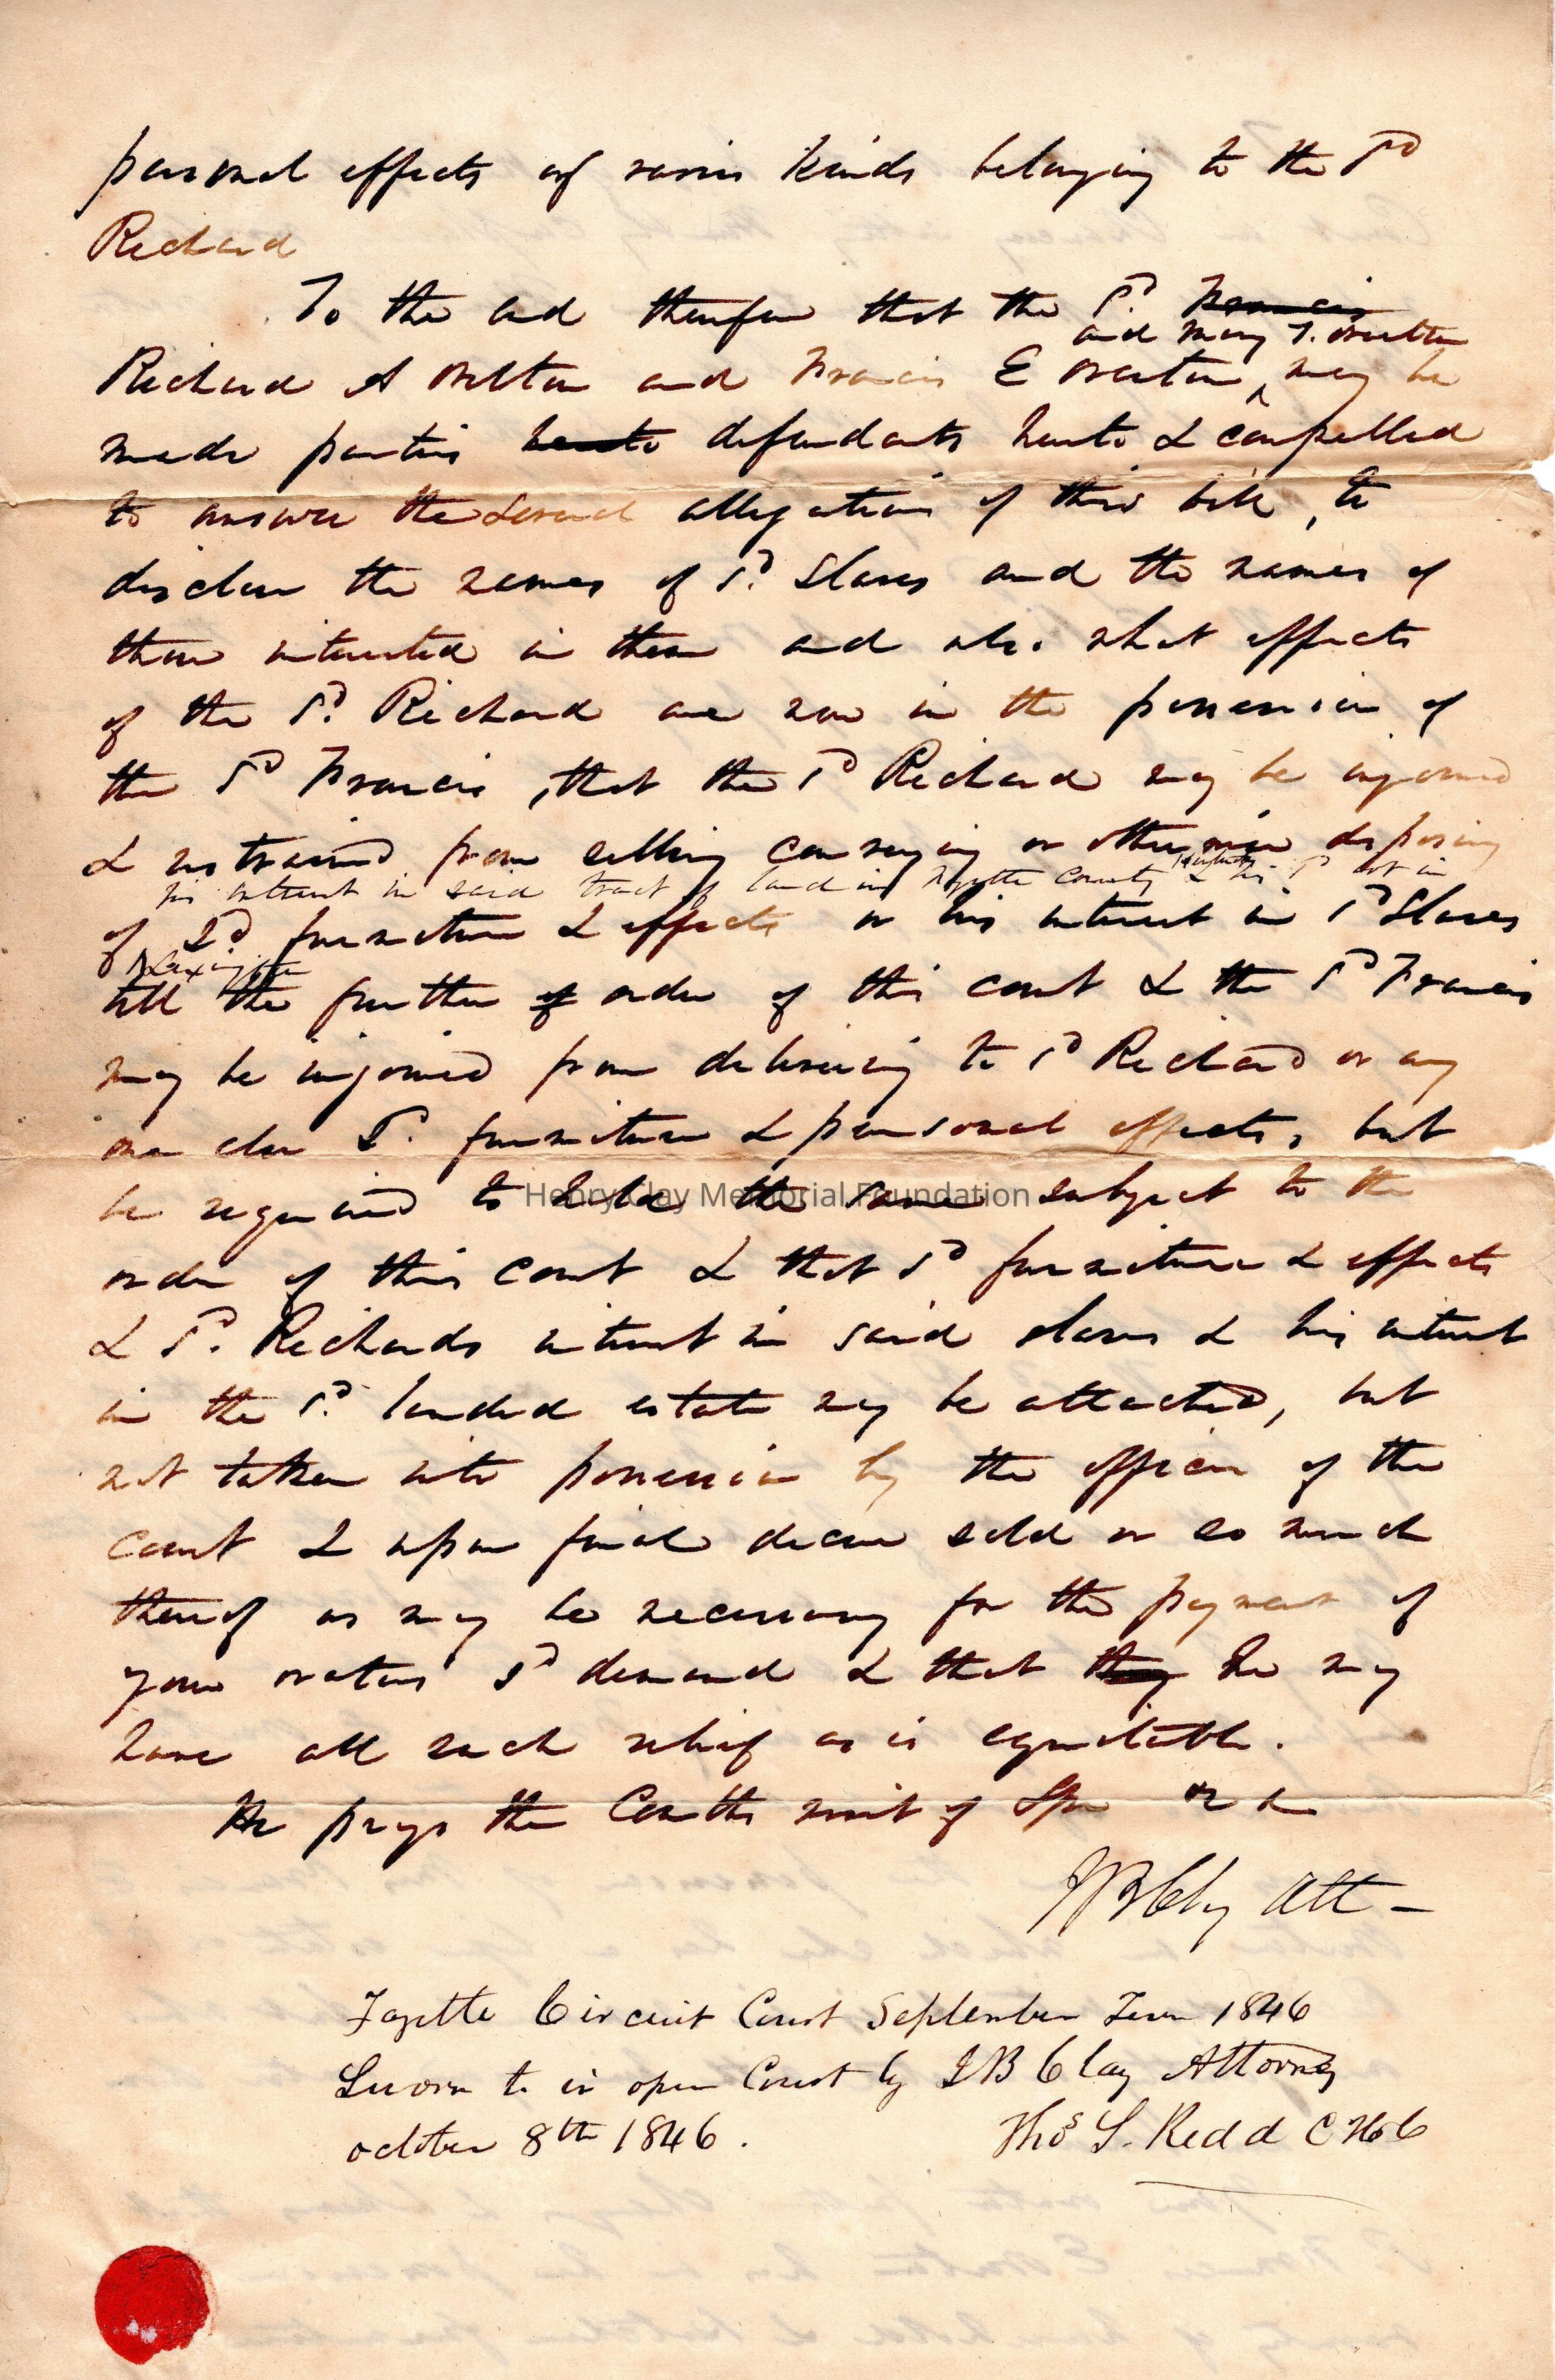 personal effects of various kinds belonging to the sd
Richard
To the end therefore that the sd. Francis
and Mary T. Overton
Richard A Overton and Francis E Overton ^ may be
made parties hereto defendants hereto & compelled
to answer the several allegations of this bill, to
disclose the names of sd. slaves and the names of
those interested in them and also what effects
of the sd. Richard are now in the possession of
the sd Francis, that the sd Richard may be injoined
& restrained from selling conveying or otherwise disposing
his interest in said tract of land in Fayette County & his sd lot in
of ^ sd. furniture & effects or his interest in sd Slaves
Lexington
till the further of order of this court & the sd Francis
may be injoined from delivering to sd Richard or any
one else sd. furniture & personal effects, but
be required to hold the same subject to the
Henry Clay Memorial Foundation
order of this court & that sd furniture & effects
& sd. Richards interest in said slaves & his interest
in the sd. landed estate may be attached, but
not taken into possession by the officer of the
court & upon final decree sold or so much
thereof as may be necessary for the payment of
your orators sd demand & that they he may
have all such relief as is equitable.
He prays the Cmwths writ of Spa &c &c
J B Clay Att -
Fayette Circuit Court September Term 1846
Sworn to in open Court by J B Clay Attorney
october 8th 1846.
Thos S. Redd C F C C